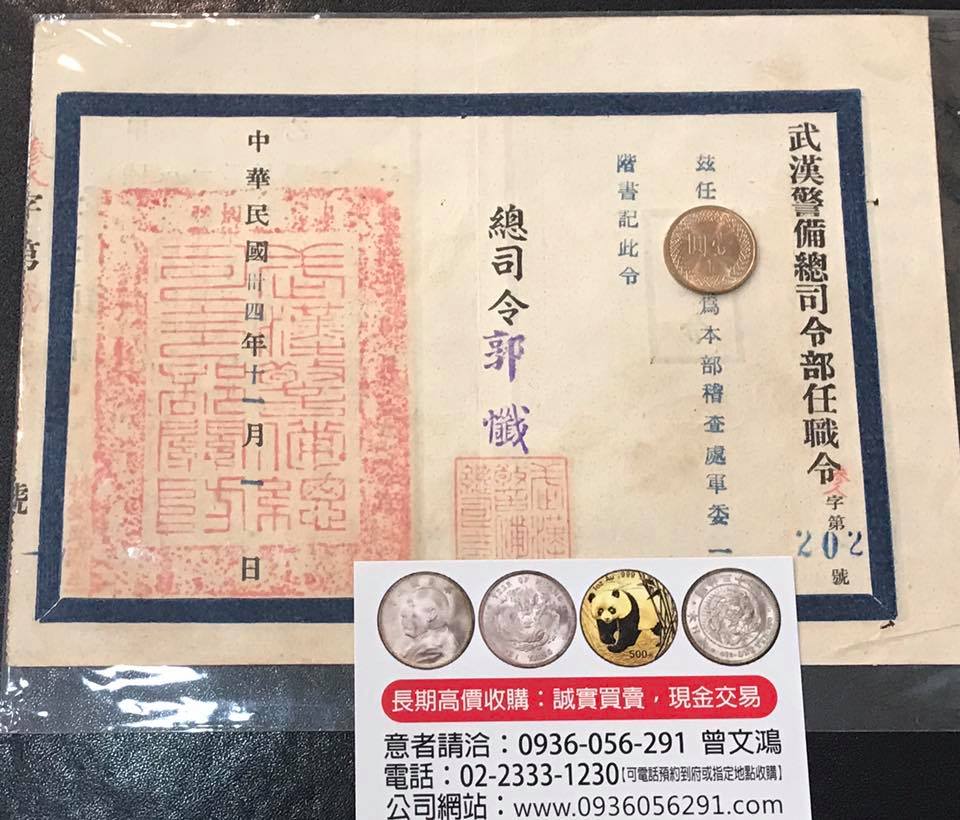 武漢警備總司令部任職令
參字第202號
茲任
為本部稽查處軍委一
階書記此令
總司令郭懺
中華民國卅四年十一月一日
字第
號
長期高價收購：誠實買賣，現金交易
意者請洽：0936-056-291 曾文鴻
電話：02-2333-1230【可電話預約到府或指定地點收購】
公司網站：www.0936056291.com